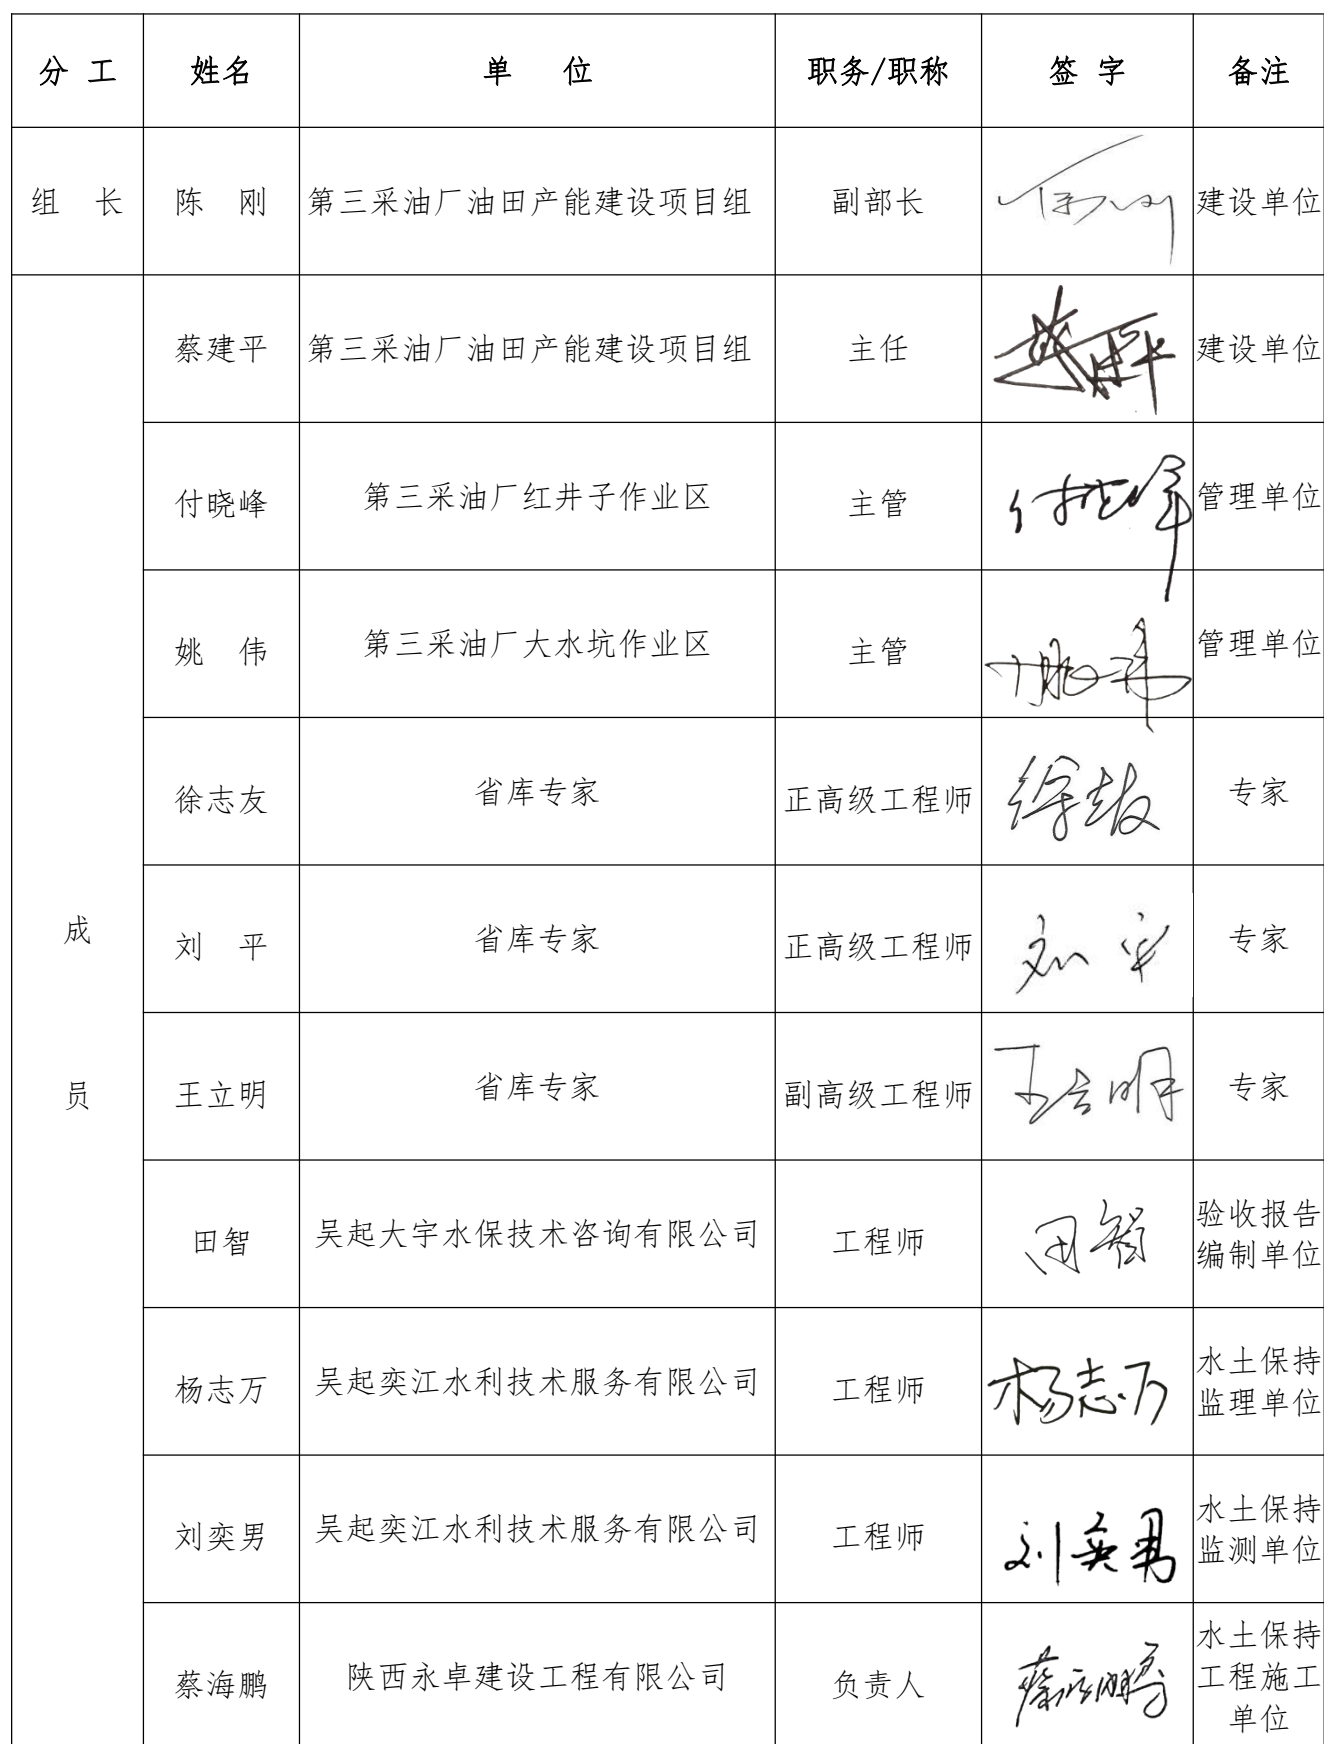 分 工 姓名 单 位 职务/职称 签 字 备注
组 长 陈 刚 第三采油厂油田产能建设项目组 副部长 陈刚 建设单位
蔡建平 第三采油厂油田产能建设项目组 主任 蔡建平 建设单位
付晓峰 第三采油厂红井子作业区 主管 付晓峰 管理单位
姚 伟 第三采油厂大水坑作业区 主管 姚伟 管理单位
徐志友 省库专家 正高级工程师 徐志友 专家
成
刘 平 省库专家 正高级工程师 刘平 专家
员
王立明 省库专家 副高级工程师 王立明 专家
田智 吴起大宇水保技术咨询有限公司 工程师 田智 验收报告
编制单位
杨志万 吴起奕江水利技术服务有限公司 工程师 杨志万 水土保持
监理单位
刘奕男 吴起奕江水利技术服务有限公司 工程师 刘奕男 水土保持
监测单位
蔡海鹏 陕西永卓建设工程有限公司 负责人 蔡海鹏 水土保持
工程施工
单位